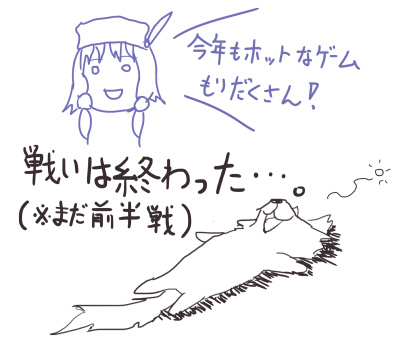 今年もホットなゲーム
もりだくさん!
戦いは終わった…
(※まだ前半戦)